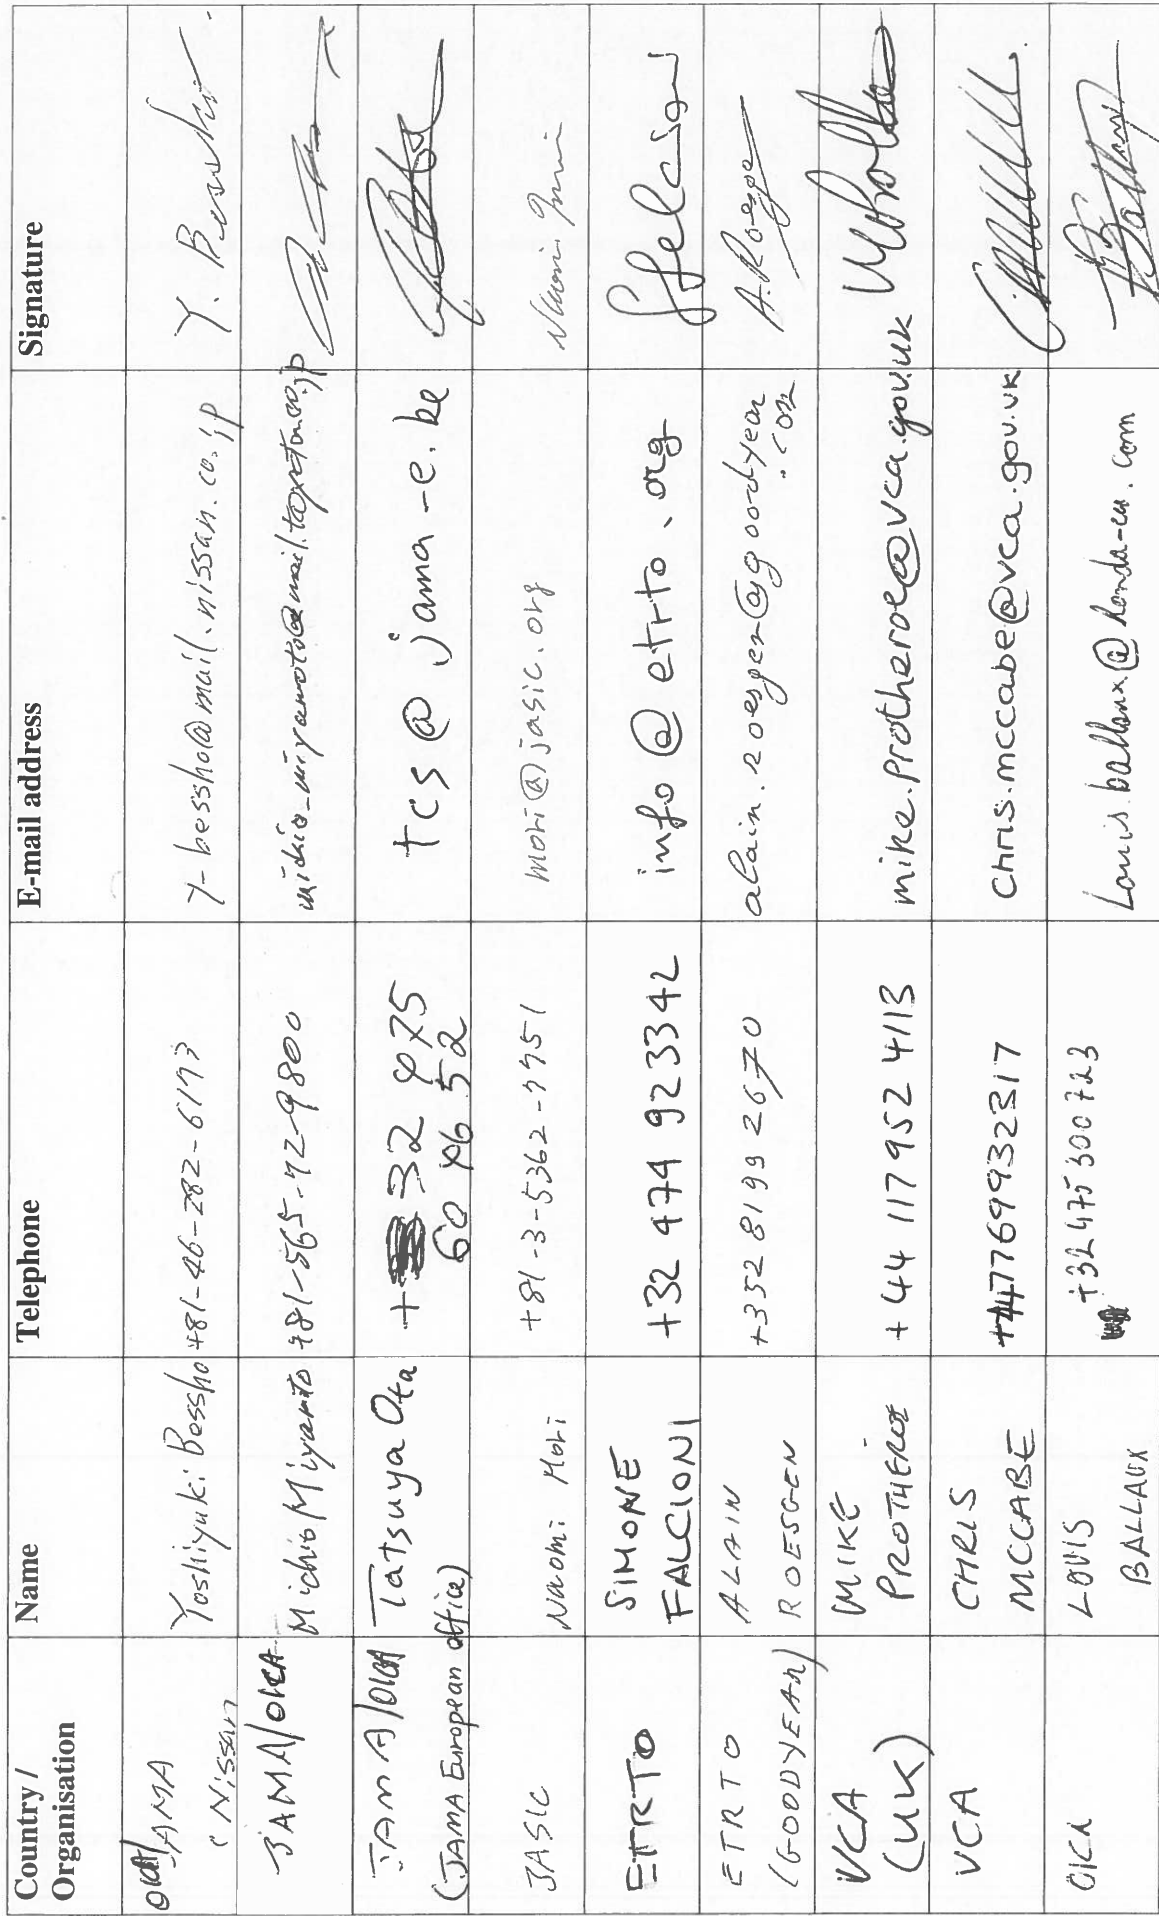 Country / Organisation | Name | Telephone | E-mail address | Signature
OICA/JAMA (Nissan | Yoshiyuki Bessho | +81-46-282-6193 | y-bessho@mail.nissan.co.jp | Y. Bessho
JAMA/OICA | Michio Miyamoto | +81-565-72-9800 | michio-miyamoto@mail.toyota.co.jp
JAMA/OICA (JAMA European office) | Tatsuya Ota | +32 475 60 46 52 | tcs@jama-e.be
JASIC | Naomi Mori | +81-3-5362-7751 | mori@jasic.org | Naomi Mori
ETRTO | SIMONE FALCIONI | +32 474 923342 | info@etrto.org
ETRTO (GOODYEAR) | ALAIN ROESGEN | +352 8199 2670 | alain.roesgen@goodyear.com | A. Roesgen
VCA (UK) | MIKE PROTHEROE | +44 117 952 4113 | mike.protheroe@vca.gov.uk
VCA | CHRIS MCCABE | +447769932317 | chris.mccabe@vca.gov.uk
OICA | LOUIS BALLAUX | +32 475 300723 | Louis.ballaux@honda-eu.com